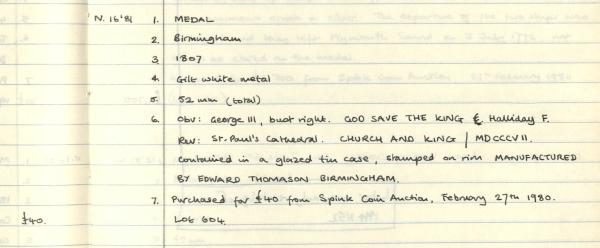 N. 16'81 1. MEDAL
2. Birmingham
3. 1807
4. Gilt white metal
5. 52 mm (total)
6. Obv: George III, bust right. GOD SAVE THE KING &. Halliday F.
Rev: St. Paul's Cathedral. CHURCH AND KING / MDCCCVII.
Contained in a glazed tin case, stamped on rim MANUFACTURED
BY EDWARD THOMASON BIRMINGHAM.
7. Purchased for £40 from Spink Coin Auction, February 27th 1980.
£40. Lot 604.